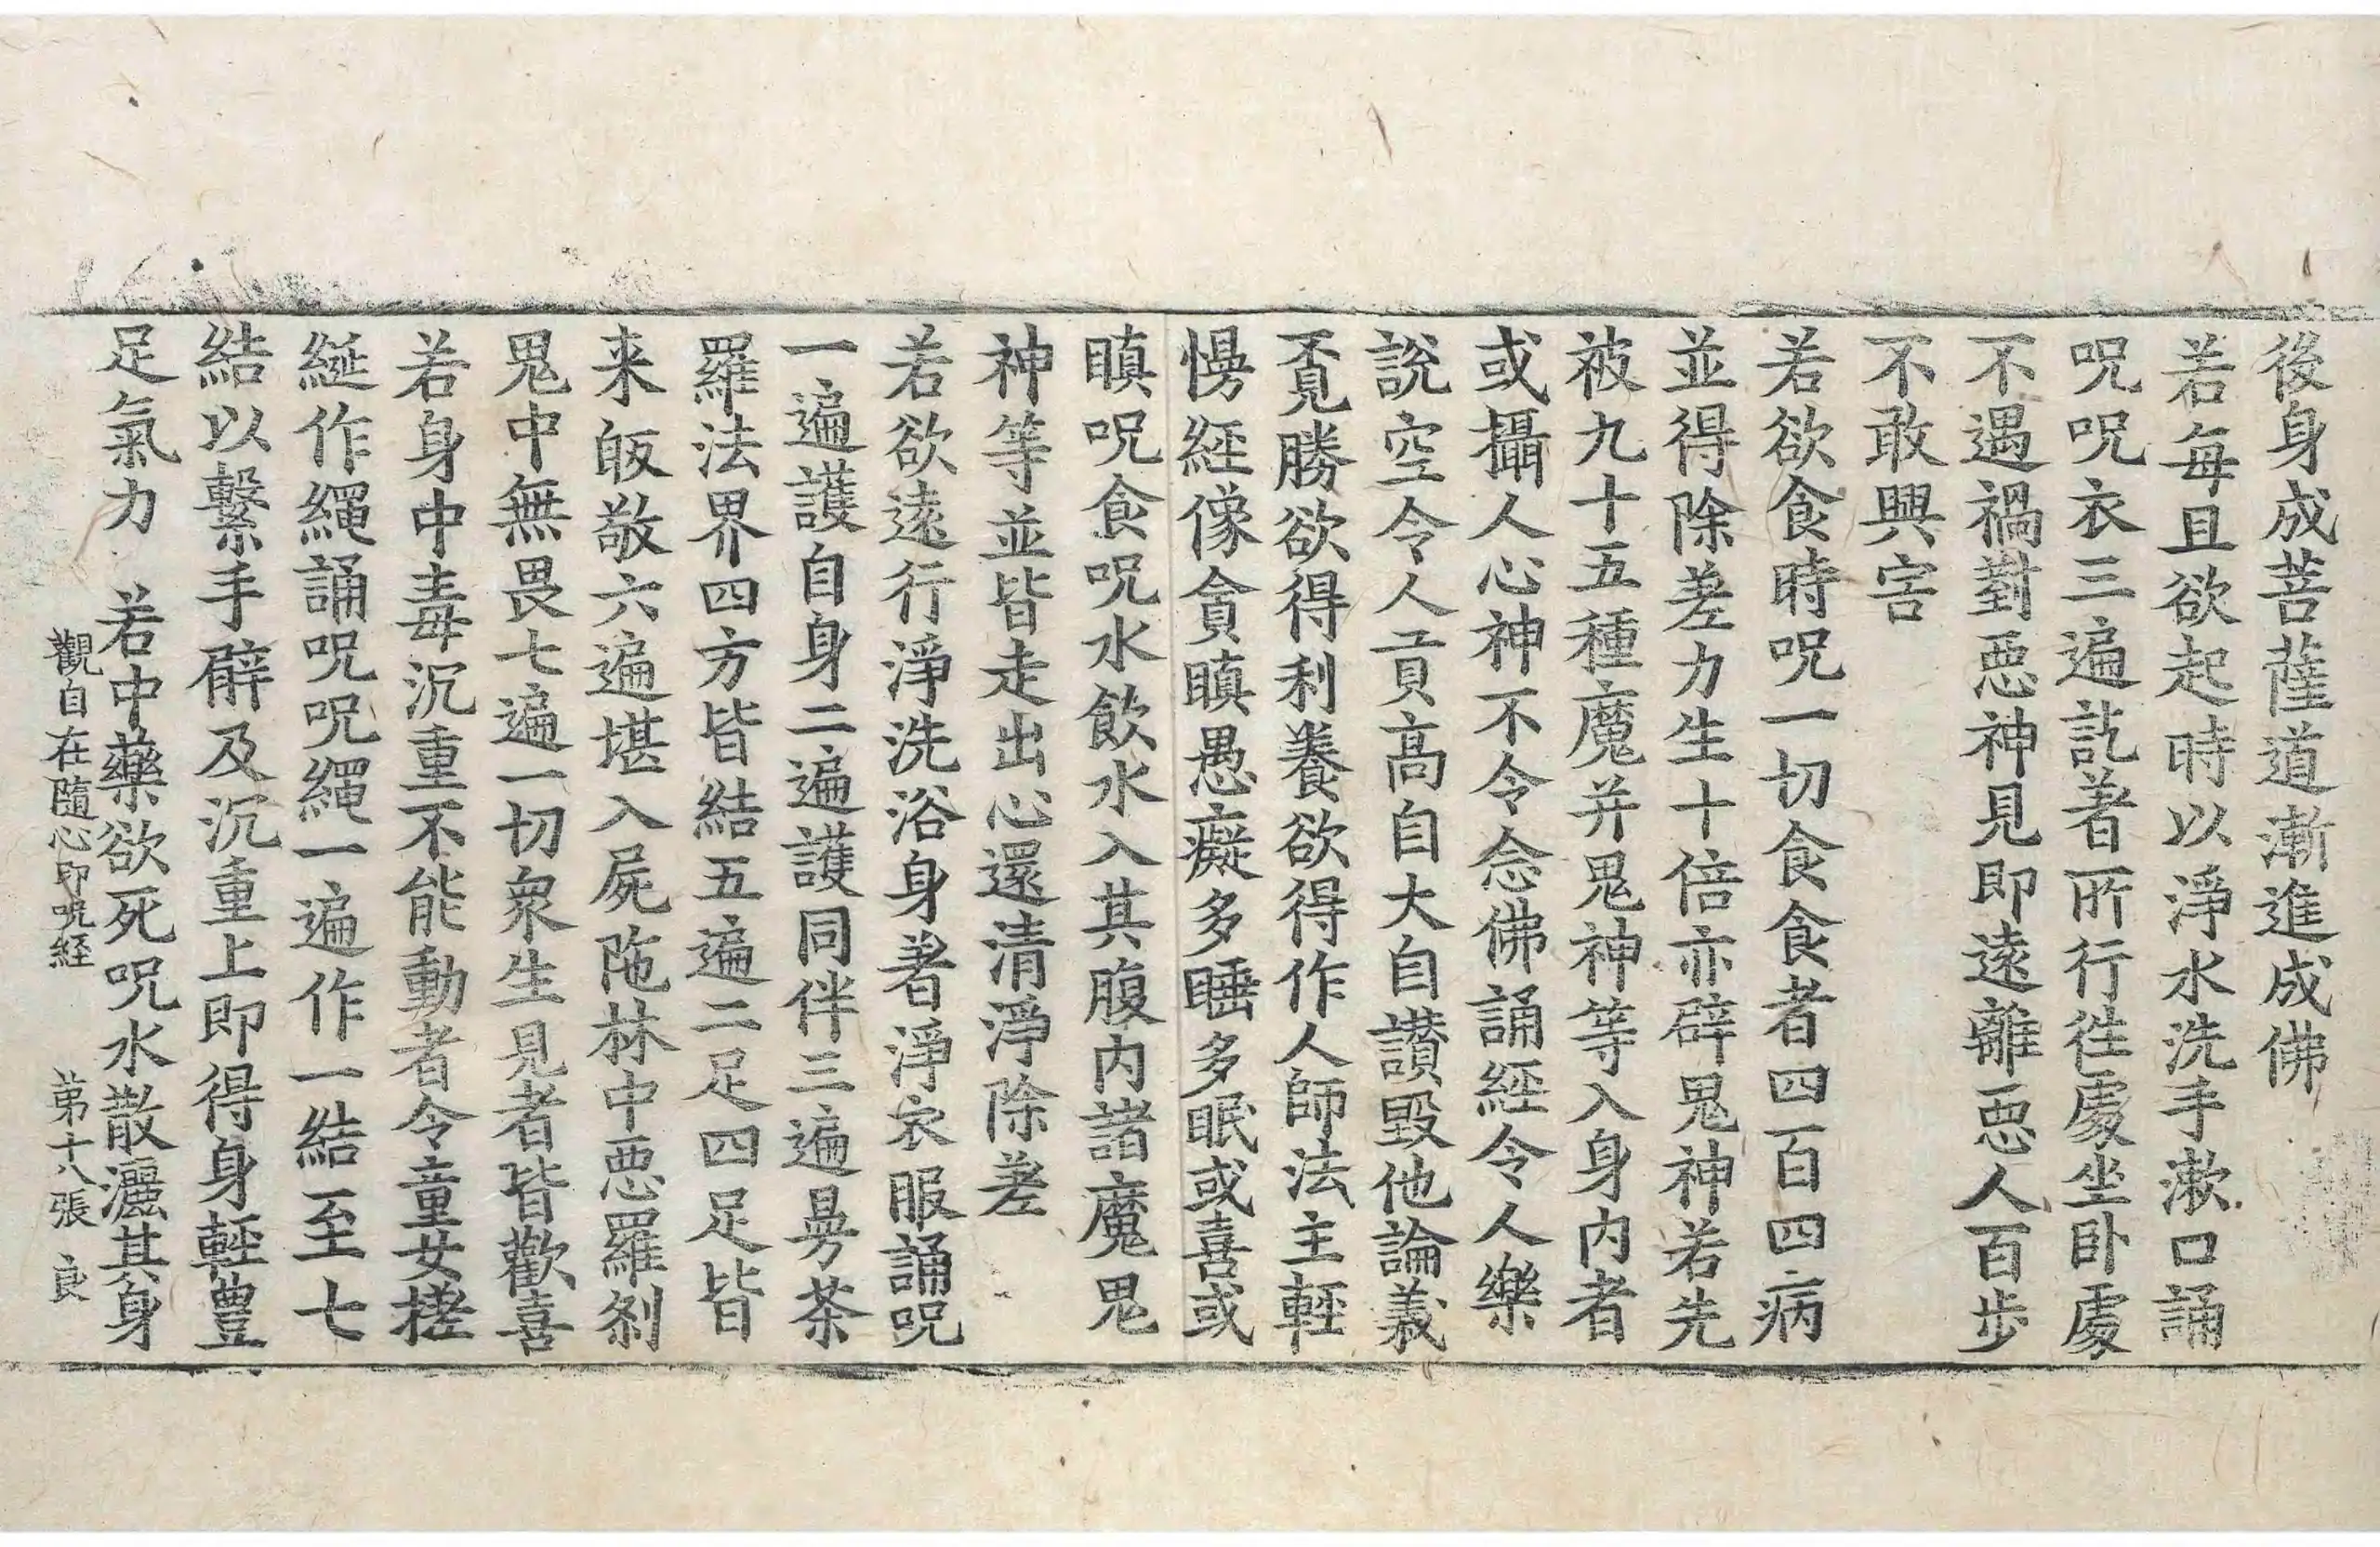 後身成菩薩道漸進成佛
若每旦欲起時以淨水洗手漱口誦
呪呪衣三遍訖著所行往處坐卧處
不遇禍對惡神見即遠離惡人百步
不敢興害
若欲食時呪一切食食者四百四病
並得除差力生十倍亦辟鬼神若先
被九十五種魔并鬼神等入身内者
或攝人心神不令念佛誦經令人樂
說空令人貢高自大自讃毀他論義
覔勝欲得利養欲得作人師法主輕
慢經像貪瞋愚癡多睡多眠或喜或
瞋呪食呪水飲水入其腹内諸魔鬼
神等並皆走出心還清淨除差
若欲遠行淨洗浴身著淨衣服誦呪
一遍護自身二遍護同伴三遍曼茶
羅法界四方皆結五遍二足四足皆
来皈敬六遍堪入屍陁林中惡羅刹
鬼中無畏七遍一切衆生見者皆歡喜
若身中毒沉重不能動者令童女搓
綖作繩誦呪呪繩一遍作一結至七
結以繫手臂及沉重上即得身輕豊
足氣力 若中藥欲死呪水散灑其身
觀自在隨心印呪経 第十八張 良